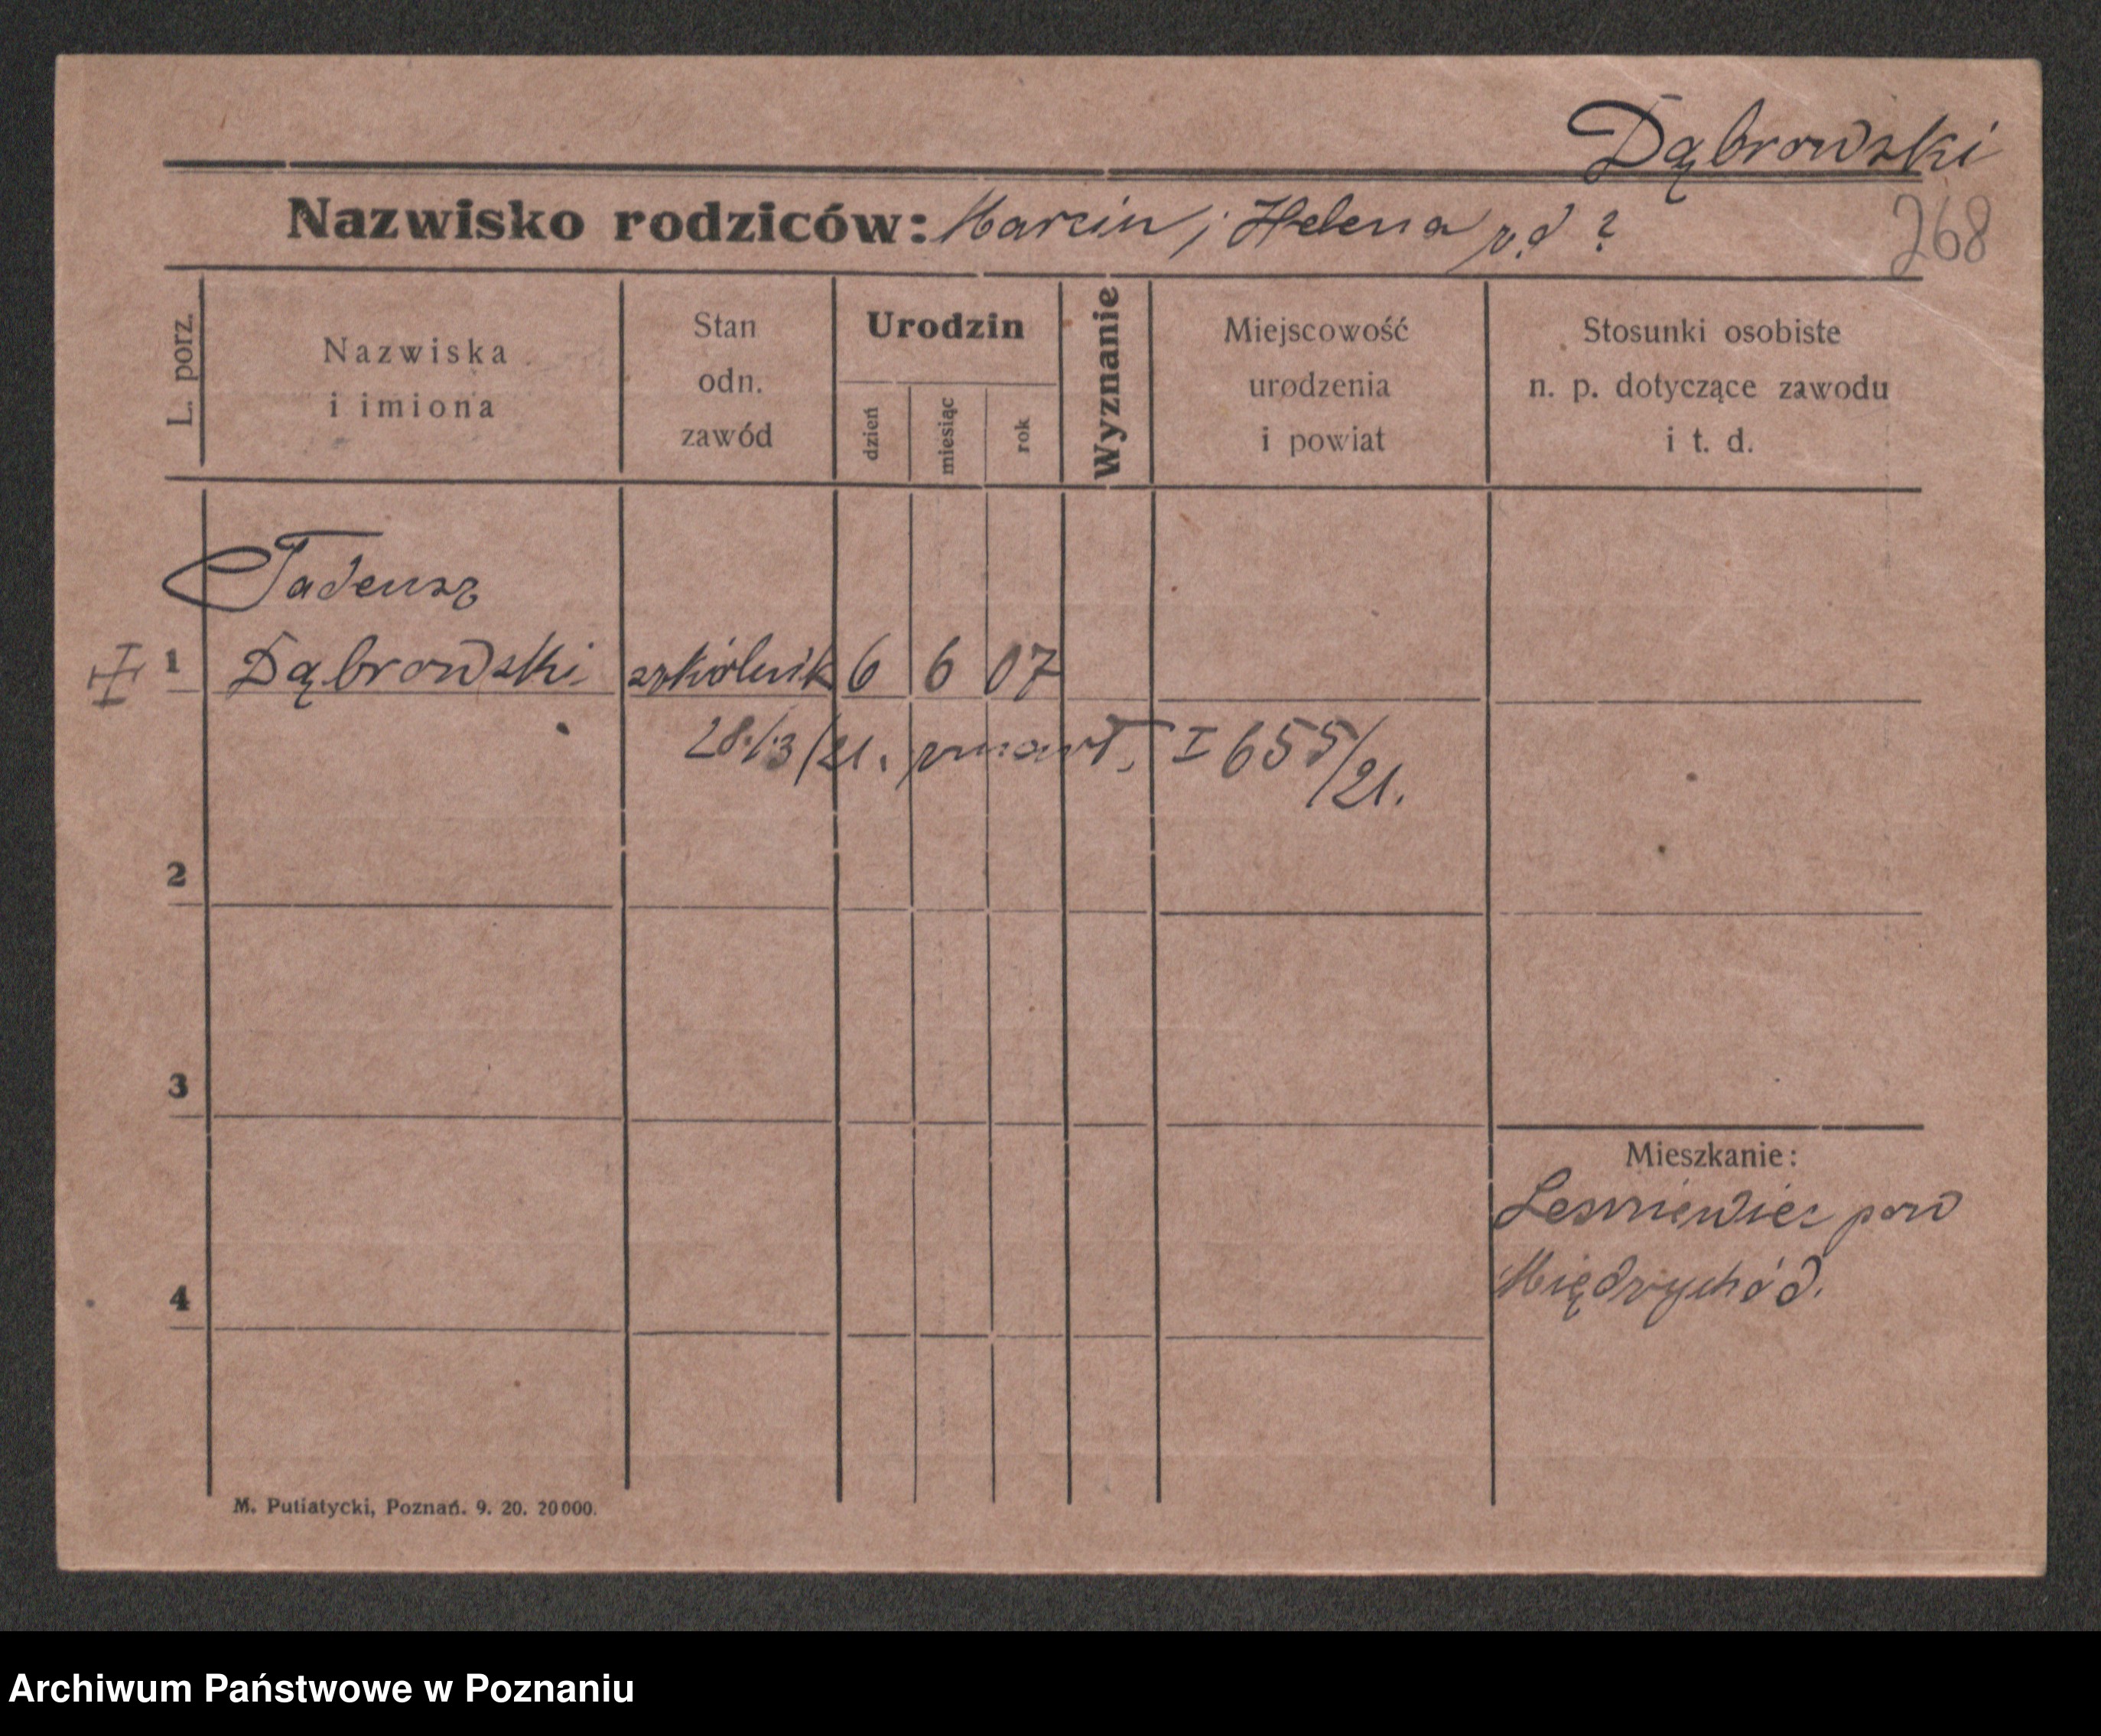 Dąbrowski
Nazwisko rodziców: Marcin i Helena z.d ?
268
L. porz.
Nazwiska
i imiona
Stan
odn.
zawód
Urodzin
dzień
miesiąc
rok
Wyznanie
Miejscowość
urodzenia
i powiat
Stosunki osobiste
n. p. dotyczące zawodu
i t. d.
Tadeusz
1 Dąbrowski szkólnik 6 6 07
28./3/21. zmarł. I 655/21.
2
3
Mieszkanie:
Lesniewiec pow
Międzychód.
4
M. Putiatycki, Poznań. 9. 20. 20000.
Archiwum Państwowe w Poznaniu